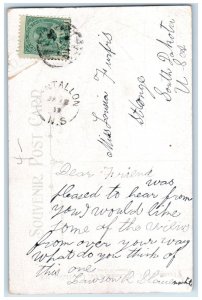 TANTALLON
N.S.
SOUVENIR POST CARD
Miss Louisa
Strange
South Dakota
U.S.A
Dear Friend
was
pleased to hear from
you, I would like
some of the views
from over your way
What do you think of
this one
Lawson